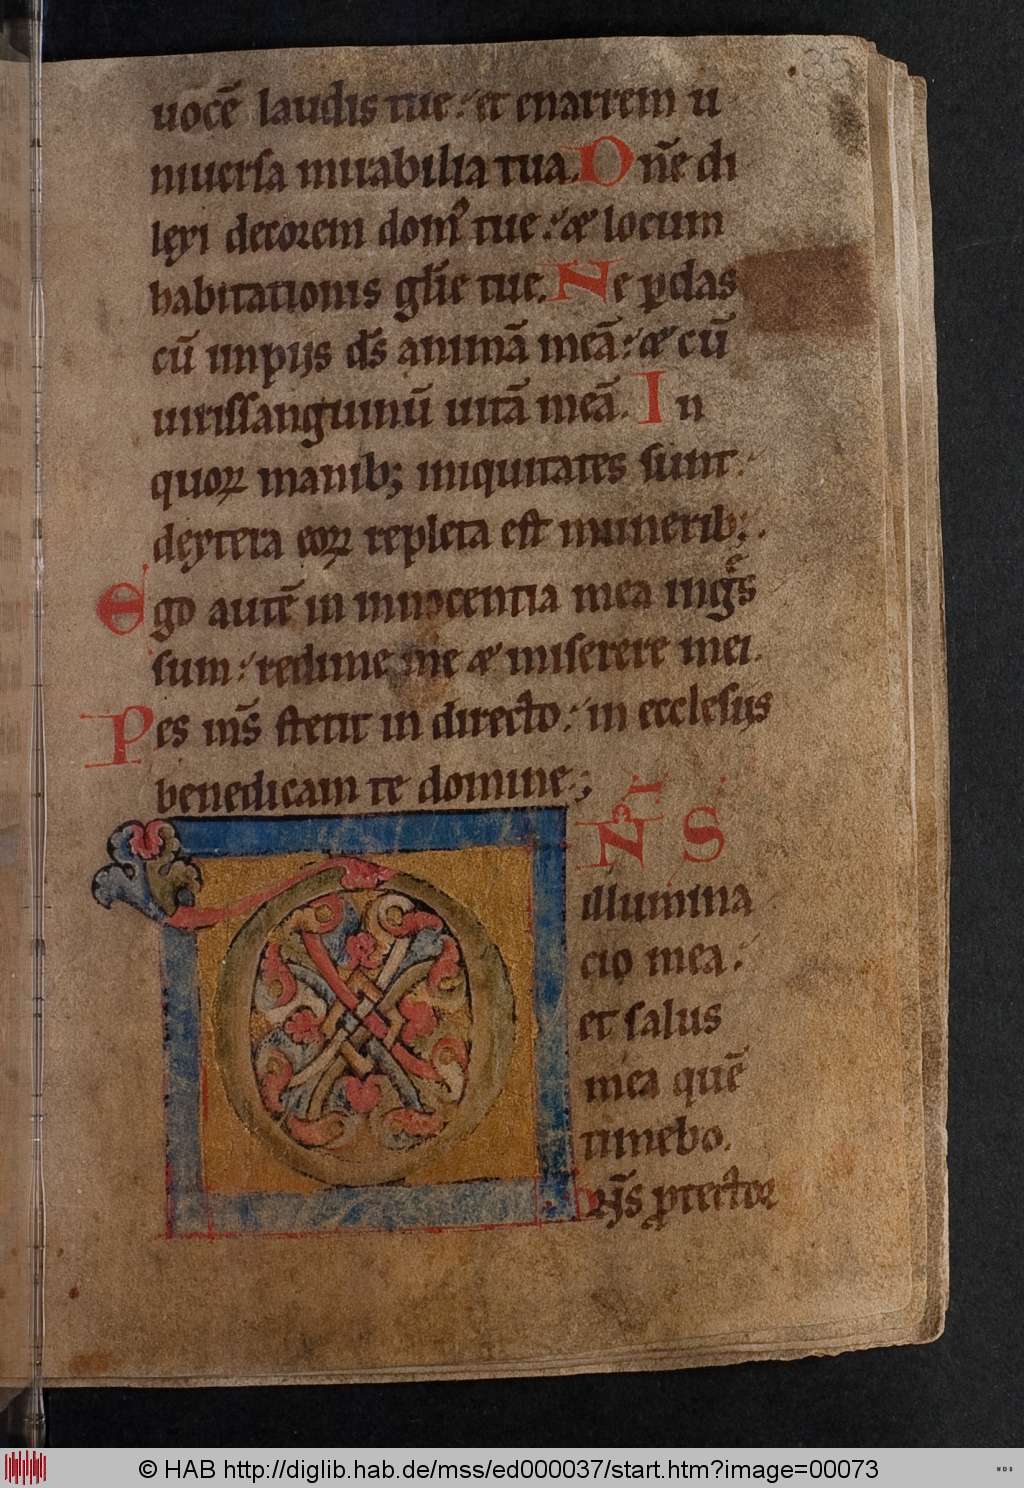 35
uocē laudis tue: et enarrem u
niuersa mirabilia tua. Dn̄e di
lexi decorem dom⁹ tue: & locum
habitationis gl̄ie tue. Ne ꝑdas
cū impijs ds̄ animā meā: & cū
uirissanguinū uitā meā. In
quoꝝ manib; iniquitates sunt:
dextera eoꝝ repleta est munerib;.
Ego autē in innocentia mea ingͤs̄
sum: redime me & miserere mei.
Pes ms̄ stetit in directo: in ecclesijs
benedicam te domine;
D N̄S
illumina
cio mea:
et salus
mea quē
timebo.
Dn̄s ꝓtector
© HAB http://diglib.hab.de/mss/ed000037/start.htm?image=00073